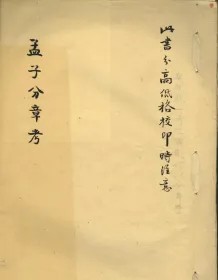 此書分高低格校印時注意
孟子分章考